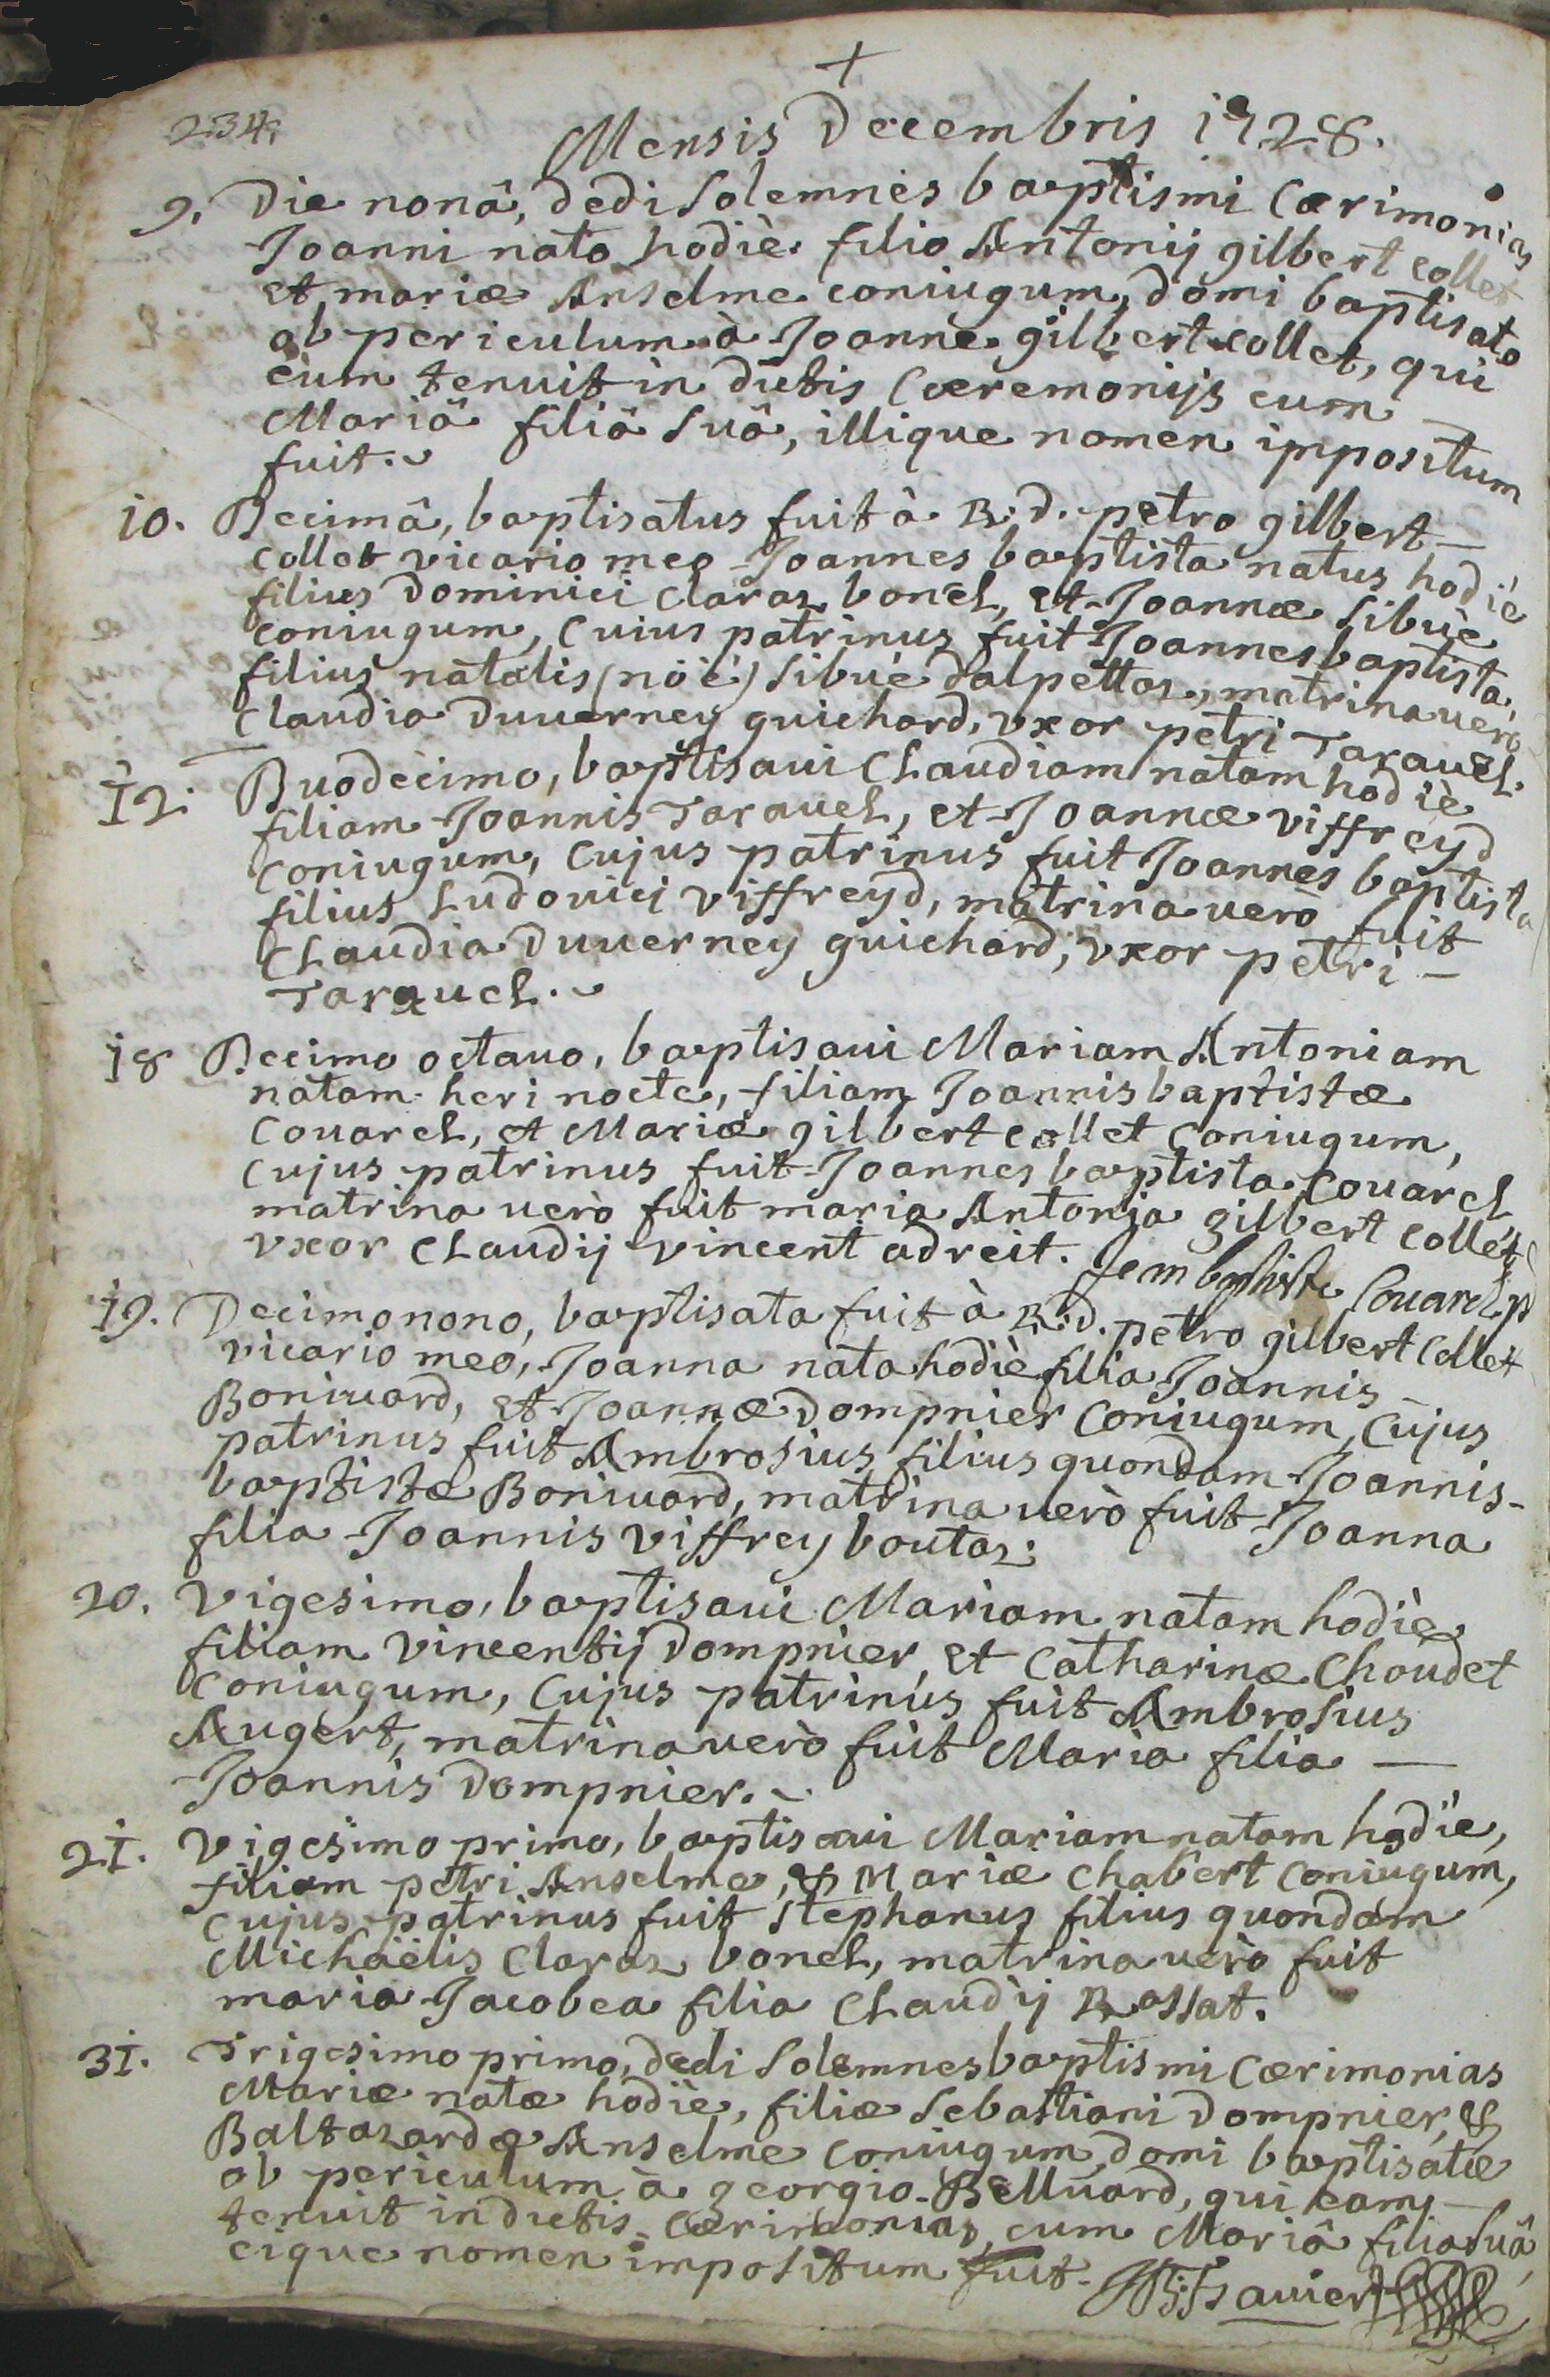 +
234.
Mensis Decembris 1728.
9. Die nonâ, dedi solemnes baptismi Cærimonias
Joanni nato hodiè. filio Antonij gilbert collet
et mariæ Anselme coniugum, domi baptisato
ob periculum à Joanne gilbert collet, qui
eum tenuit in dictis Cæremonijs cum
Mariâ filiâ suâ, illique nomen impositum
fuit.
10. Decimâ, baptisatus fuit à R.d. petro gilbert -
collet vicario meo Joannes baptista natus hodiè
filius Dominici Claraz bonel, et Joannæ sibuè
coniugum, Cuius patrinus fuit Joannes baptista
filius natalis (nöé) sibué dalpettaz, matrina verò
Claudia Duuerney guichard, vxor petri Tarauel.
12. Duodecimo, baptisaui Claudiam natam hodiè
filiam Joannis Tarauel, et Joannæ viffreyd
coniugum, Cujus patrinus fuit Joannes baptista
filius Ludouici viffreyd, matrina verò fuit
Claudia Duuerney guichard, vxor petri -
Tarauel.
18 Decimo octauo, baptisaui Mariam Antoniam
natam heri nocte, filiam Joannis baptistæ
Couarel, et Mariæ gilbert collet coniugum,
Cujus patrinus fuit Joannes baptista Couarel
matrina uerò fuit maria Antonia gilbert collet
vxor Claudij vincent adreit. Jean baptiste Couarel p
19. Decimonono, baptisata fuit à R.d. petro gilbert Collet
vicario meo, Joanna nata hodiè filia Joannis -
Boniuard, et Joannæ Dompnier coniugum, Cujus
patrinus fuit Ambrosius filius quondam Joannis-
baptistæ Boniuard, matrina uerò fuit Joanna
filia Joannis viffrey boutaz.
20. Vigesimo, baptisaui Mariam natam hodiè
filiam Vincentij Dompnier, et Catharinæ Choudet
coniugum, Cujus patrinus fuit Ambrosius
Augert, matrina uerò fuit Maria filia -
Joannis Dompnier.
21. Vigesimo primo, baptisaui Mariam natam hodie,
filiam petri Anselme, & Mariæ chabert coniugum,
Cujus patrinus fuit stephanus filius quondam
Michaëlis Claraz bonel, matrina uero fuit
maria Jacobea filia Claudij Rossat.
31. Trigesimo primo, dedi solemnes baptismi Cærimonias
Mariæ natæ hodiè, filiæ sebastiani Dompnier, &
Baltazardæ Anselme coniugum, domi baptisatæ
ob periculum à georgio Belluard, qui eam -
tenuit in dictis Cærimonias, cum Mariâ filiâ suâ
eique nomen impositum fuit.